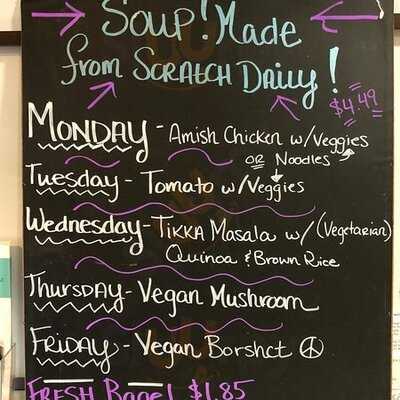 Soup! Made
from SCRATCH Daily!
$4.49
MONDAY - Amish Chicken w/Veggies
OR Noodles
Tuesday - Tomato w/Veggies
Wednesday - TIKKA MASALA w/ (Vegetarian)
Quinoa & Brown Rice
THURSDAY - Vegan Mushroom
FRIDAY - Vegan Borshct
FRESH Bagel $1.85